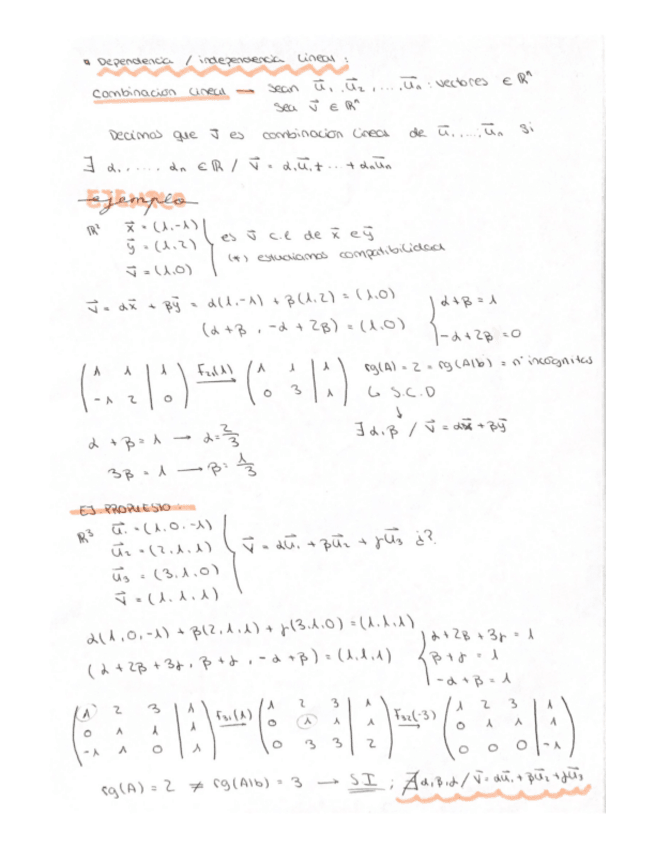 • Dependencia / independencia lineal :
combinación lineal → sean u⃗₁, u⃗₂, ..., u⃗ₙ : vectores ∈ ℝⁿ
sea v⃗ ∈ ℝⁿ
Decimos que v⃗ es combinación lineal de u⃗₁, ..., u⃗ₙ si
∃ α₁, ..... αₙ ∈ ℝ / v⃗ = α₁u⃗₁ + ... + αₙu⃗ₙ
ejemplo
ℝ² x⃗ = (1,-1)
y⃗ = (1,2)
v⃗ = (1,0)
es v⃗ c.l de x⃗ e y⃗
(*) estudiamos compatibilidad
v⃗ = αx⃗ + βy⃗ = α(1,-1) + β(1,2) = (1,0)
(α+β , -α+2β) = (1,0)
{ α+β = 1
-α+2β = 0
( 1 1 | 1 ; -1 2 | 0 ) F₂₁(1) → ( 1 1 | 1 ; 0 3 | 1 ) rg(A) = 2 = rg(A|b) = nº incógnitas
↳ S.C.D
↓
∃ α,β / v⃗ = αx⃗ + βy⃗
α + β = 1 → α = 2/3
3β = 1 → β = 1/3
EJ PROPUESTO :
ℝ³ u⃗₁ = (1,0,-1)
u⃗₂ = (2,1,1)
u⃗₃ = (3,1,0)
v⃗ = (1,1,1)
v⃗ = αu⃗₁ + βu⃗₂ + γu⃗₃ ¿?
α(1,0,-1) + β(2,1,1) + γ(3,1,0) = (1,1,1)
(α+2β+3γ, β+γ, -α+β) = (1,1,1)
{ α+2β+3γ = 1
β+γ = 1
-α+β = 1
( 1 2 3 | 1 ; 0 1 1 | 1 ; -1 1 0 | 1 ) F₃₁(1) → ( 1 2 3 | 1 ; 0 1 1 | 1 ; 0 3 3 | 2 ) F₃₂(-3) → ( 1 2 3 | 1 ; 0 1 1 | 1 ; 0 0 0 | -1 )
rg(A) = 2 ≠ rg(A|b) = 3 → SI ; ∄ α,β,γ / v⃗ = αu⃗₁ + βu⃗₂ + γu⃗₃